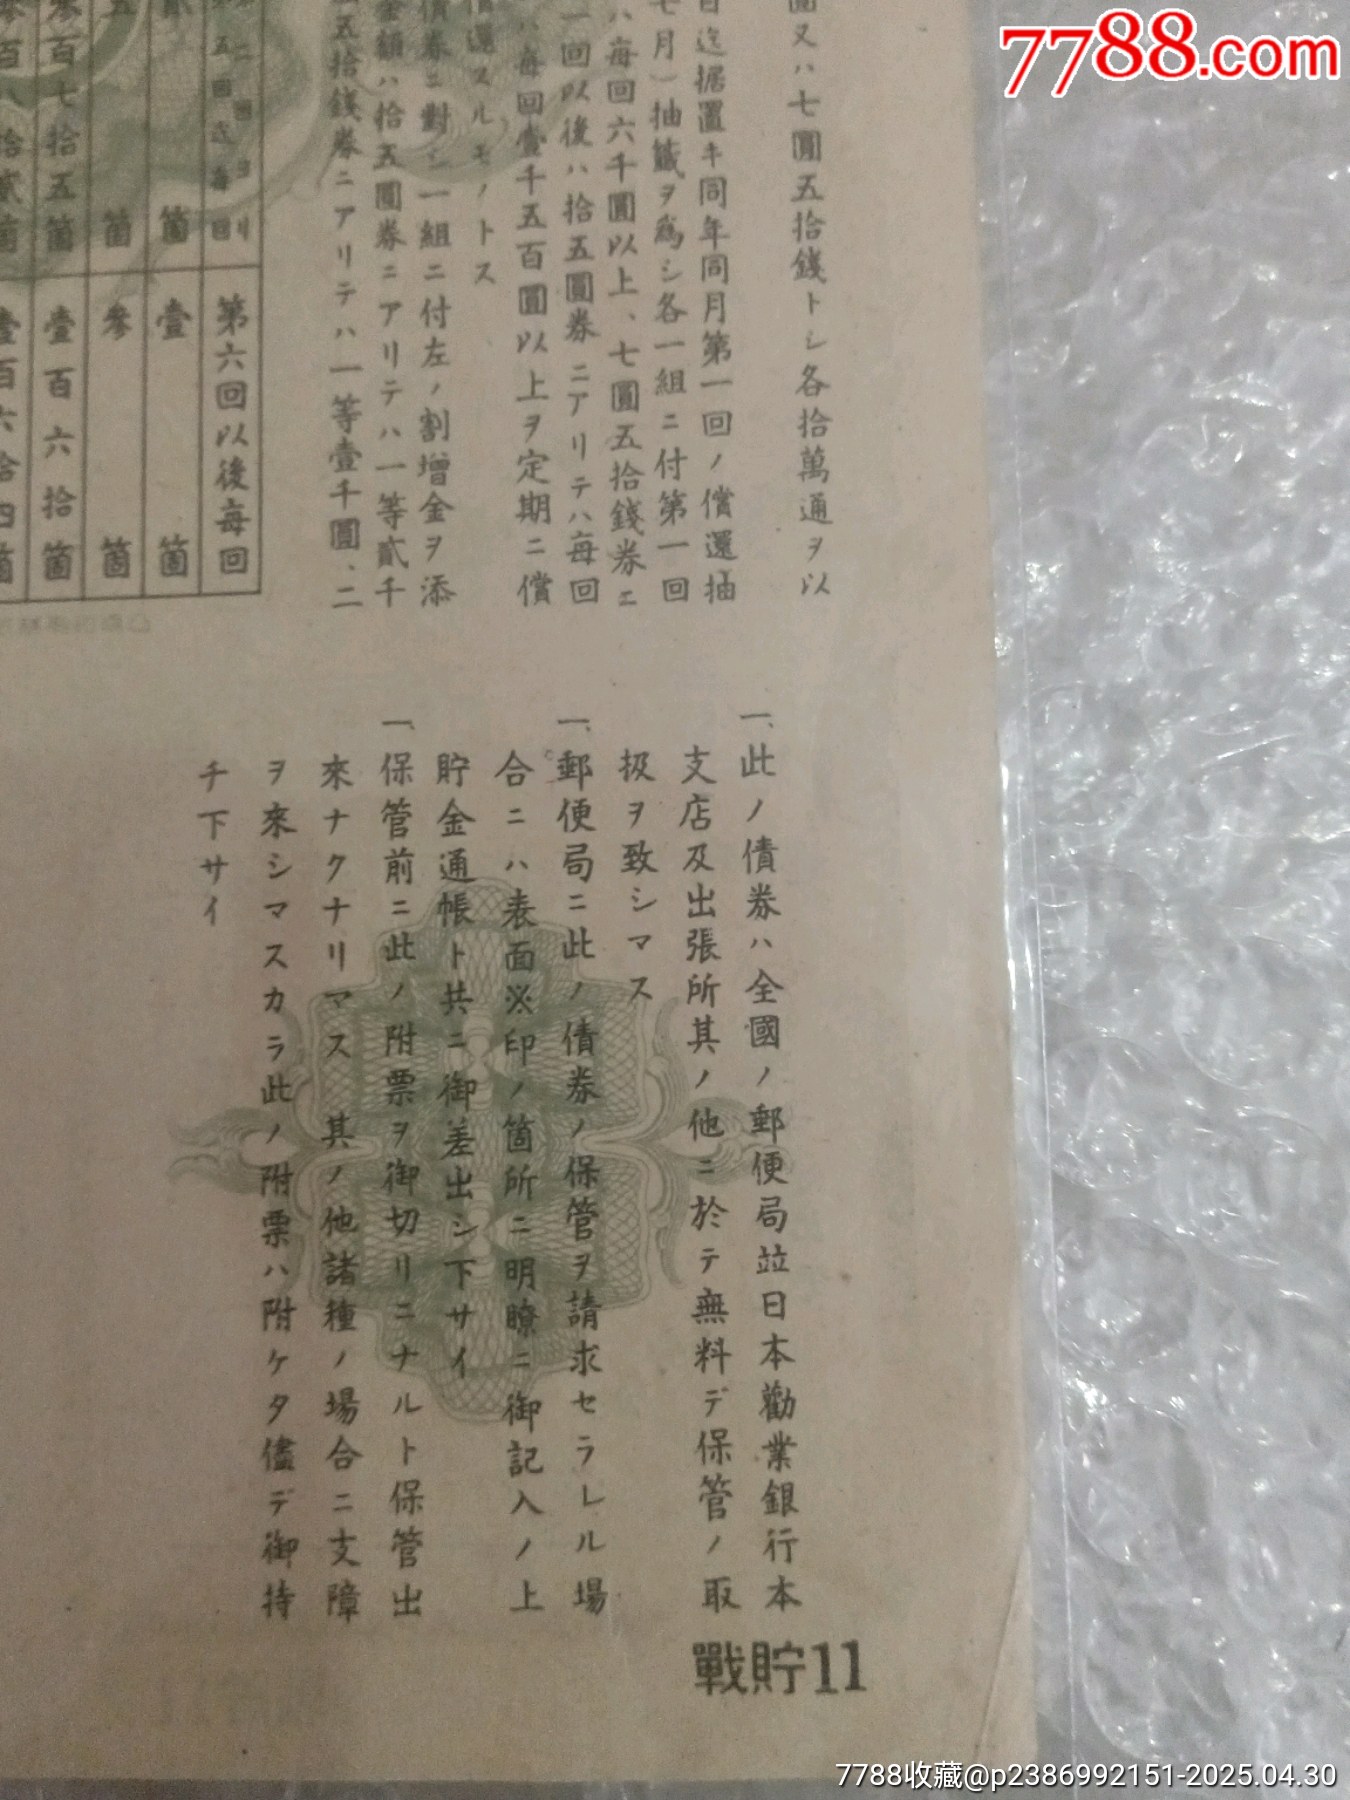 7788.com
圓又ハ七圓五拾錢トシ各拾萬通ヲ以
日迄据置キ同年同月第一回ノ償還抽
七月)抽籤ヲ爲シ各一組ニ付第一回
ハ每回六千圓以上、七圓五拾錢券ニ
一回以後ハ拾五圓券ニアリテハ每回
ハ每回壹千五百圓以上ヲ定期ニ償
償還スルモノトス
債券ニ對シ一組ニ付左ノ割增金ヲ添
金額ハ拾五圓券ニアリテハ一等貳千
五拾錢券ニアリテハ一等壹千圓、二
第六回以後每回
箇
壹箇
箇
參箇
參百七拾五箇
壹百六拾箇
參百八拾貳箇
壹百六拾四箇
一、此ノ債券ハ全國ノ郵便局竝日本勸業銀行本
支店及出張所其ノ他ニ於テ無料デ保管ノ取
扱ヲ致シマス
一、郵便局ニ此ノ債券ノ保管ヲ請求セラレル場
合ニハ表面※印ノ箇所ニ明瞭ニ御記入ノ上
貯金通帳ト共ニ御差出シ下サイ
一、保管前ニ此ノ附票ヲ御切リニナルト保管出
來ナクナリマス 其ノ他諸種ノ場合ニ支障
ヲ來シマスカラ此ノ附票ハ附ケタ儘デ御持
チ下サイ
戰貯11
7788收藏@p2386992151-2025.04.30